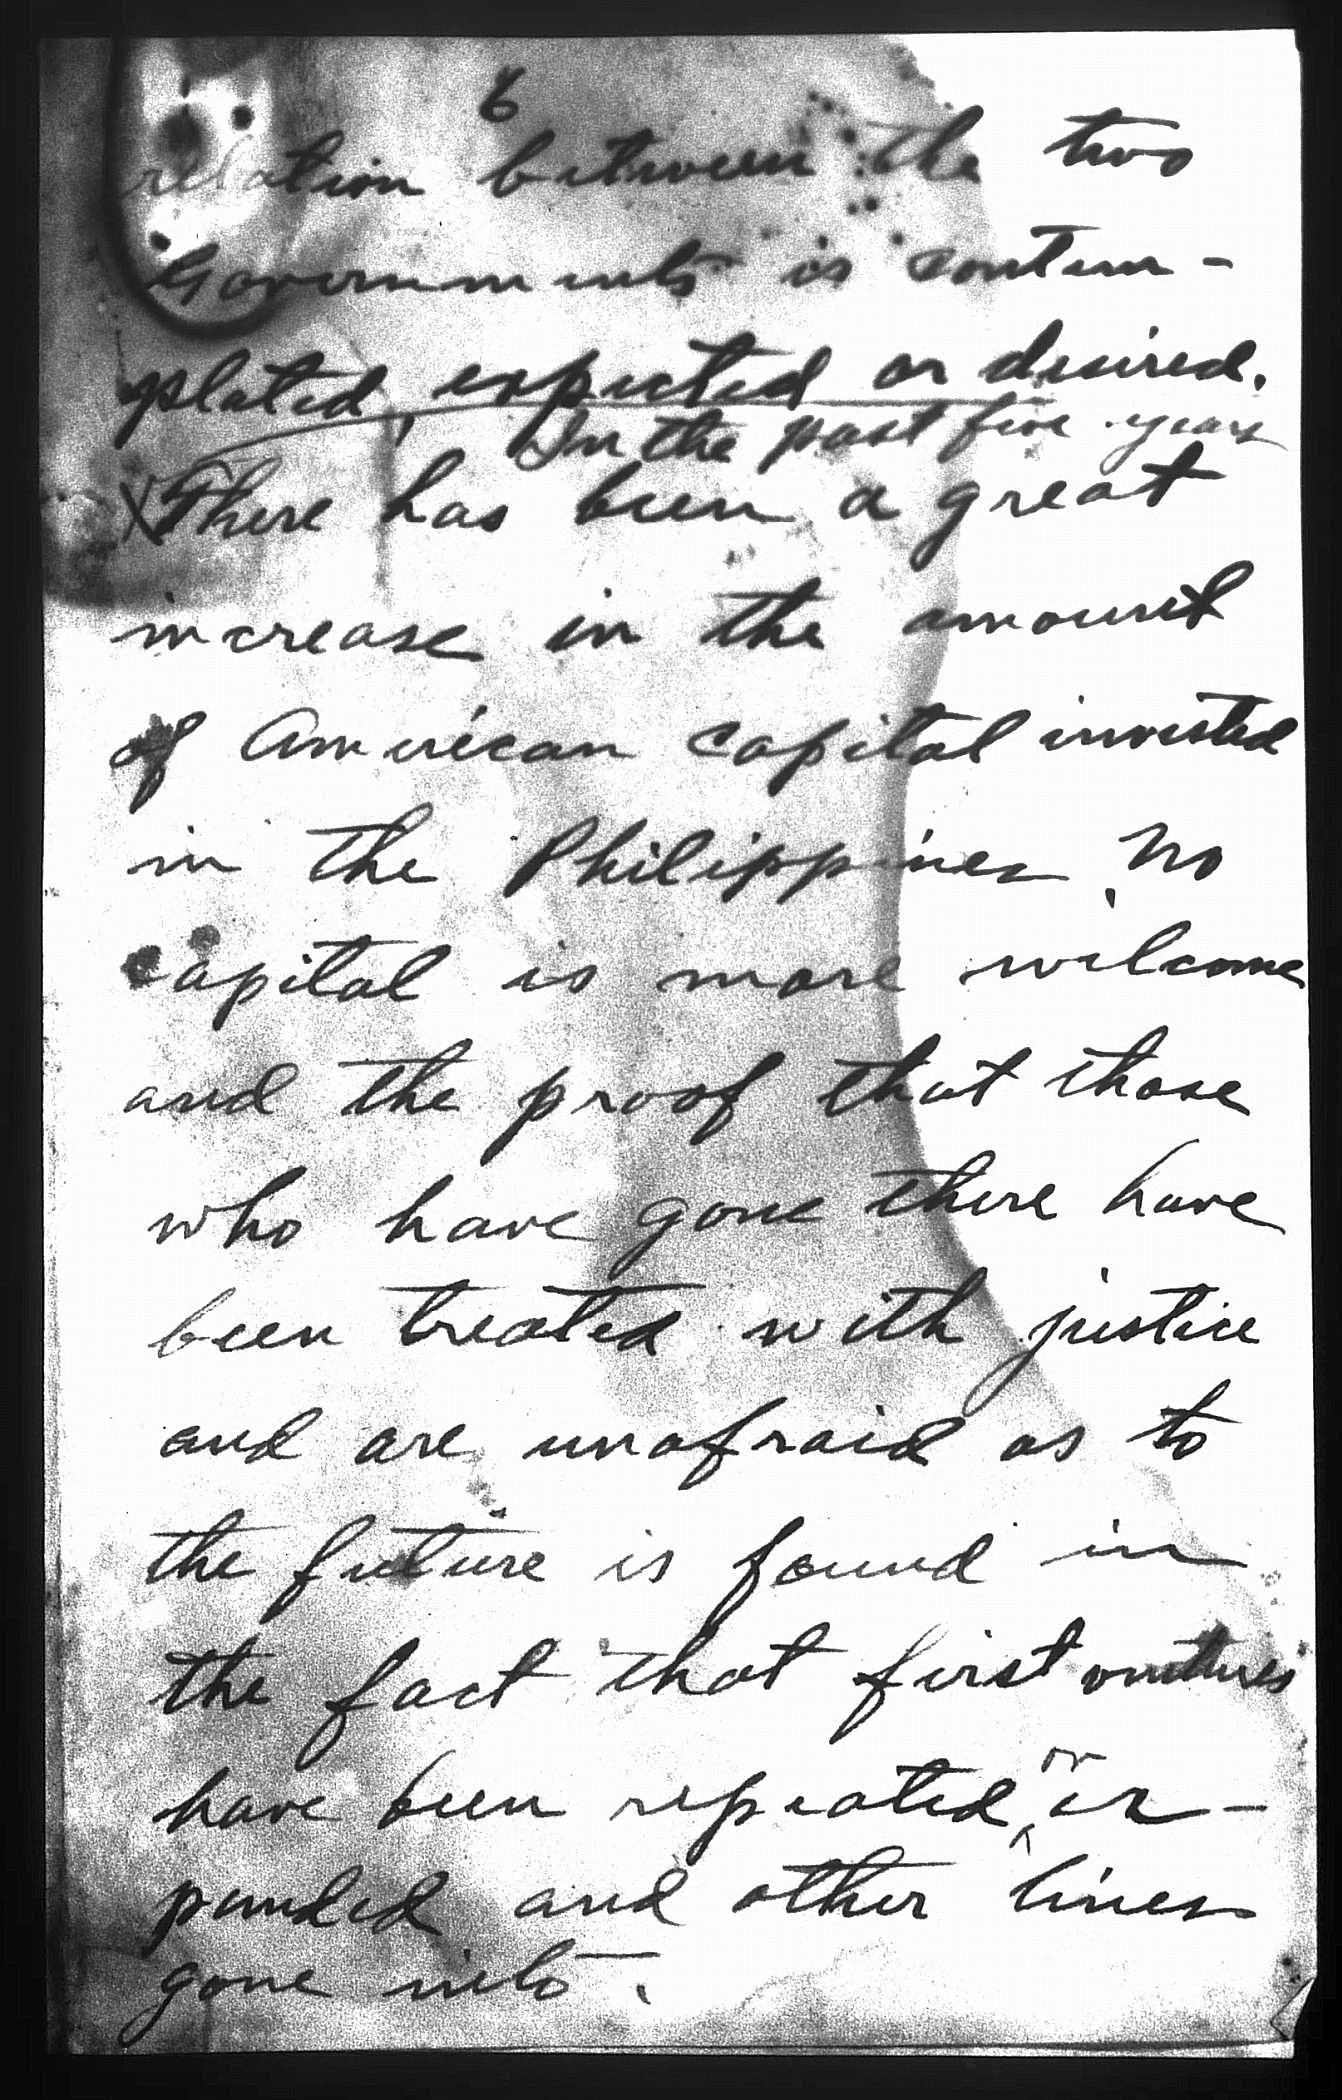 6
relation between the two
Governments is contem-
plated, expected or desired.
In the past five years
There has been a great
increase in the amount
of American capital invested
in the Philippines. No
capital is more welcome
and the proof that those
who have gone there have
been treated with justice
and are unafraid as to
the future is found in
the fact that first ventures
have been repeated, or ex-
panded and other lines
gone into.